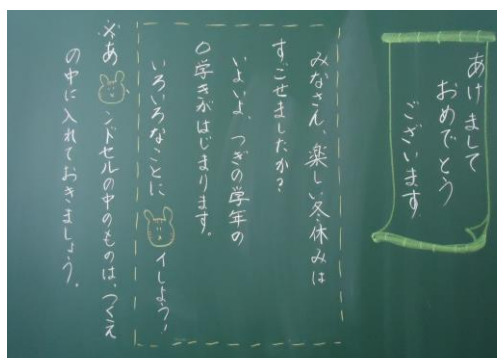 あけまして
おめでとう
ございます
みなさん、楽しい冬休みは
すごせましたか？
いよいよ、つぎの学年の
〇学きがはじまります。
いろいろなことに
イしよう！
※あ
ンドセルの中のものは、つくえ
の中に入れておきましょう。